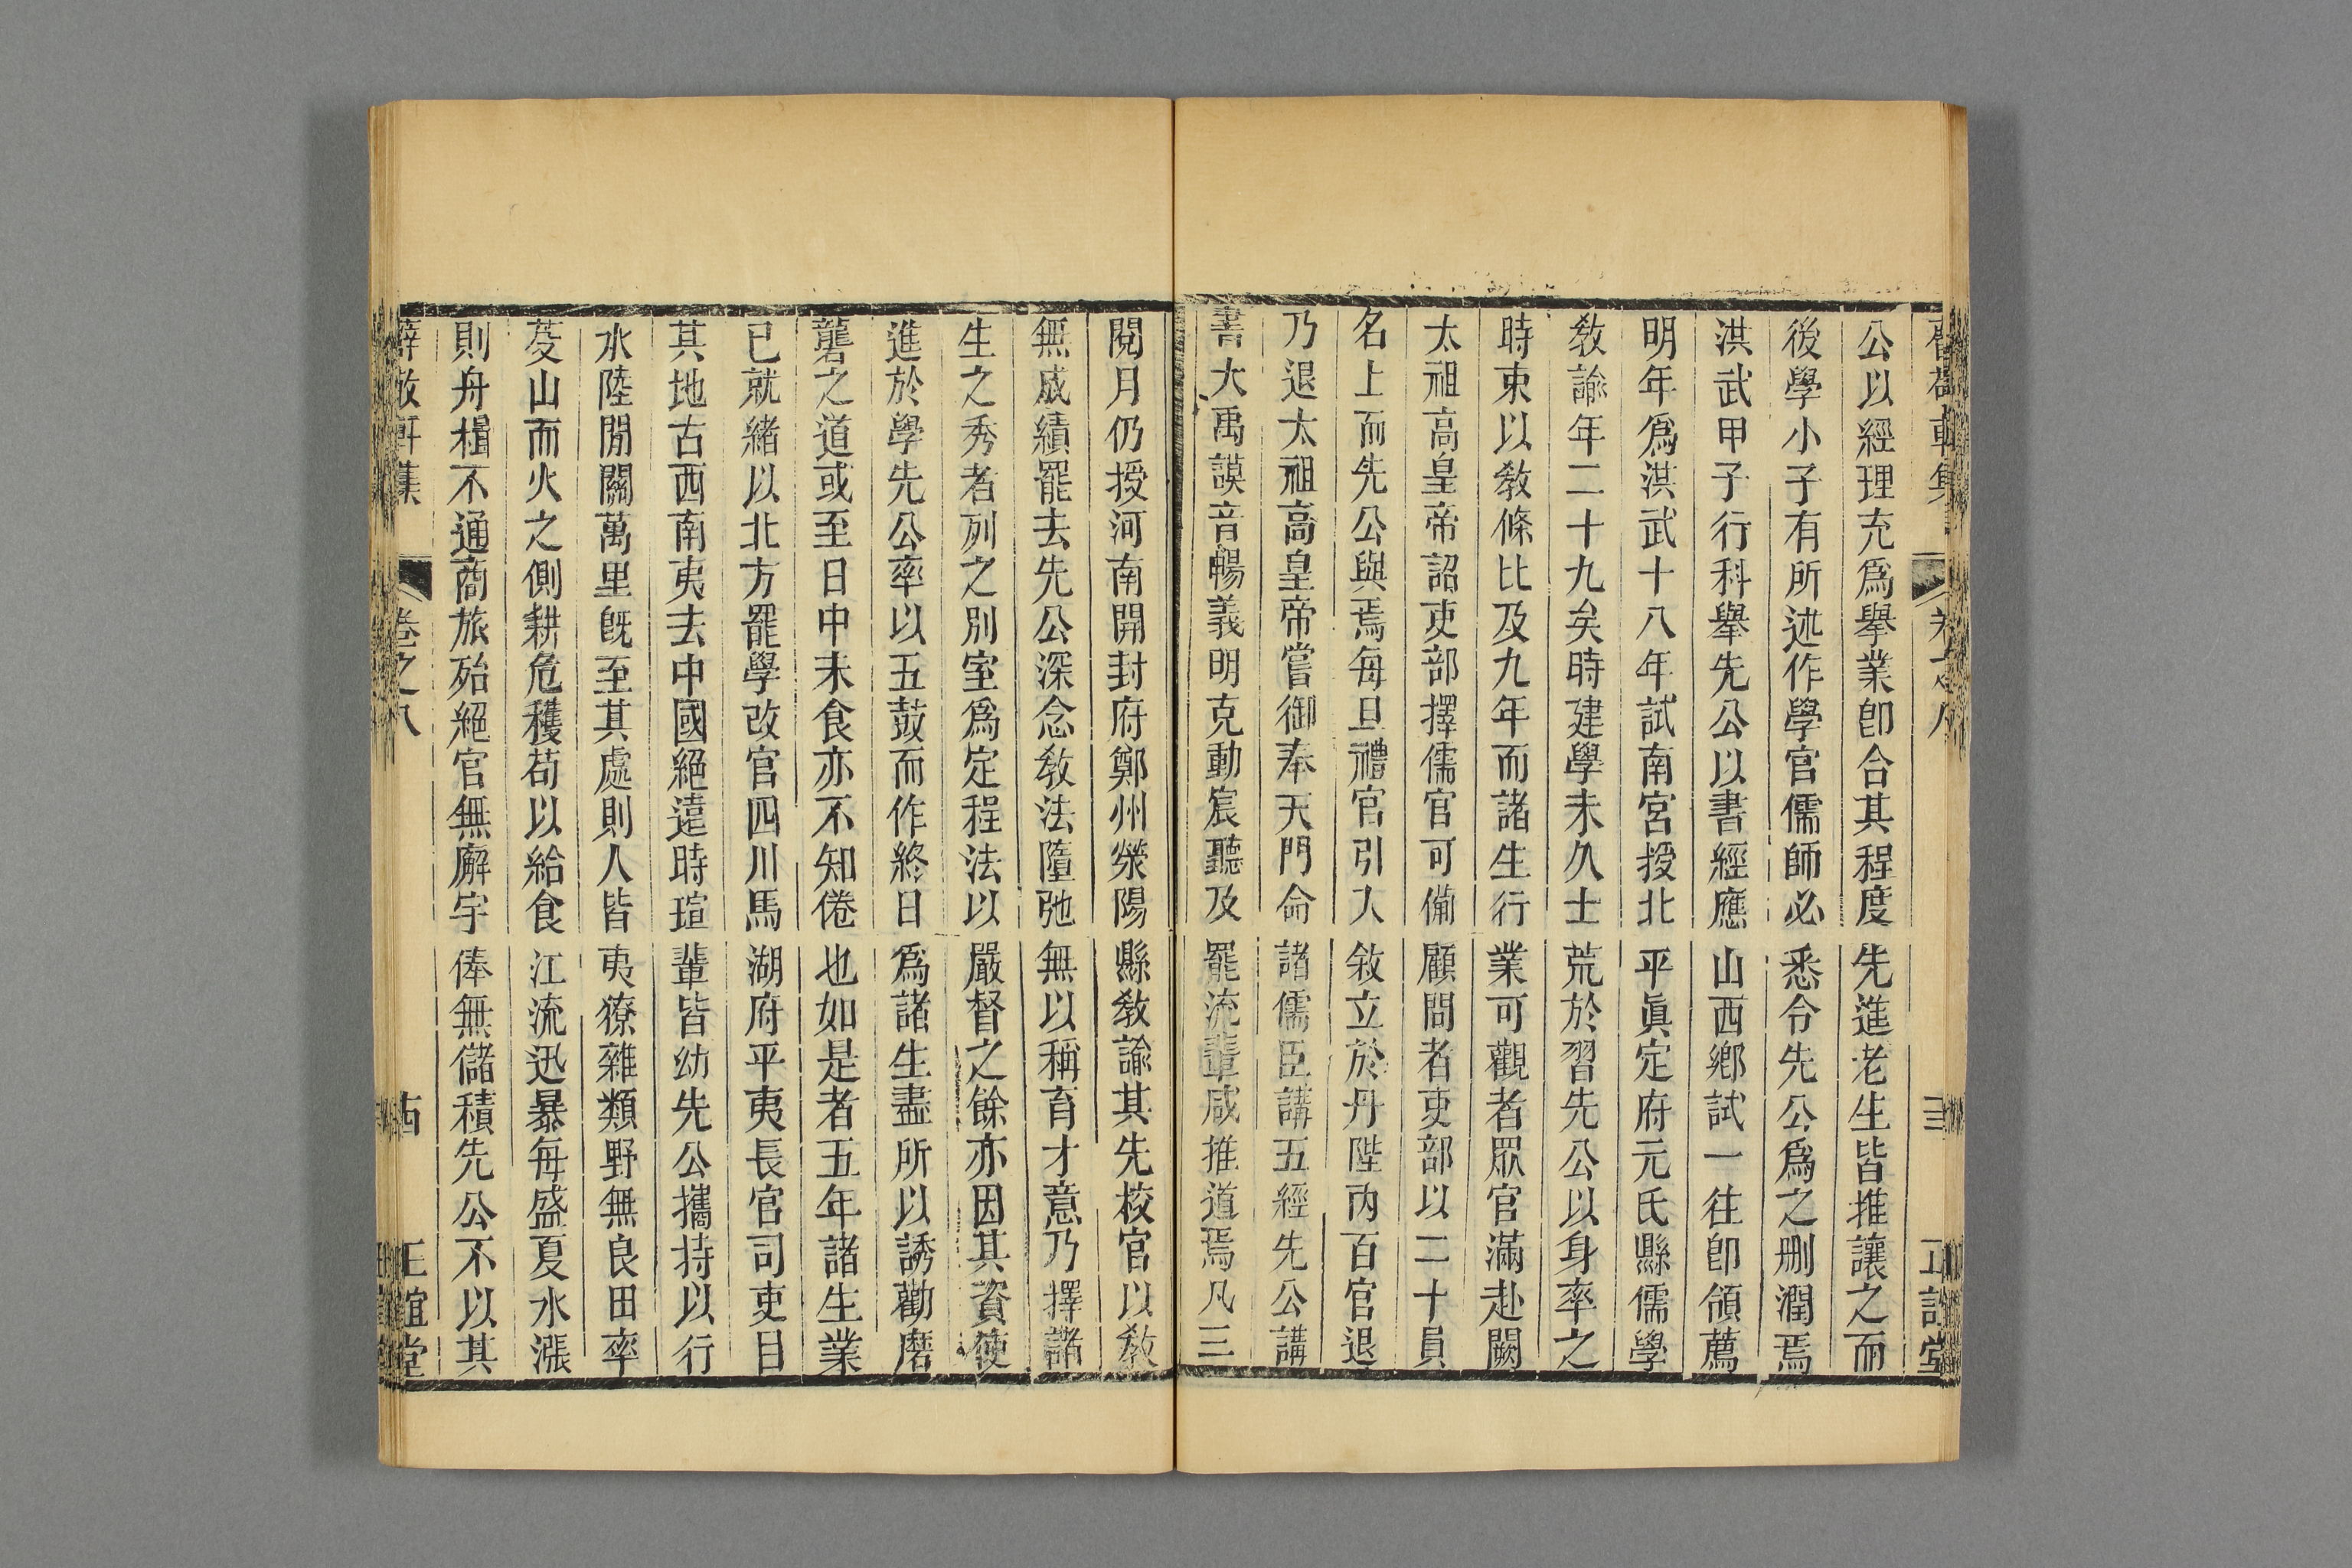 公以經理充爲擧業卽合其程度先進老生皆推讓之而
後學小子有所述作學官儒師必悉令先公爲之刪潤焉
洪武甲子行科擧先公以書經應山西鄕試一往卽領薦
明年爲洪武十八年試南宮授北平眞定府元氏縣儒學
敎諭年二十九矣時建學未久士荒於習先公以身率之
時吏以敎條比及九年而諸生行業可觀者眾官滿赴闕
太祖高皇帝詔吏部擇儒官可備顧問者吏部以二十員
名上而先公與焉每旦禮官引入敘立於丹陛丙百官退
乃退太祖高皇帝嘗御奉天門命諸儒臣講五經先公講
書大禹謨音暢義明克動宸聽及罷流輩咸推道焉凡三
閱月仍授河南開封府鄭州滎陽縣敎諭其先校官以敎
無成績罷去先公深念敎法隳弛無以稱育才意乃擇諸
生之秀者列之別室爲定程法以嚴督之餘亦因其資使
進於學先公率以五鼓而作終日爲諸生盡所以誘勸磨
礱之道或至日中未食亦不知倦也如是者五年諸生業
已就緒以北方罷學改官四川馬湖府平夷長官司吏目
其地古西南夷去中國絕遠時瑄輩皆幼先公攜持以行
水陸閒關萬里旣至其處則人皆夷獠雜類野無良田率
芟山而火之側耕危穫苟以給食江流迅暴每盛夏水漲
則舟楫不通商旅殆絕官無廨宇俸無儲積先公不以其
薛敬軒集 卷之八 西 正誼堂